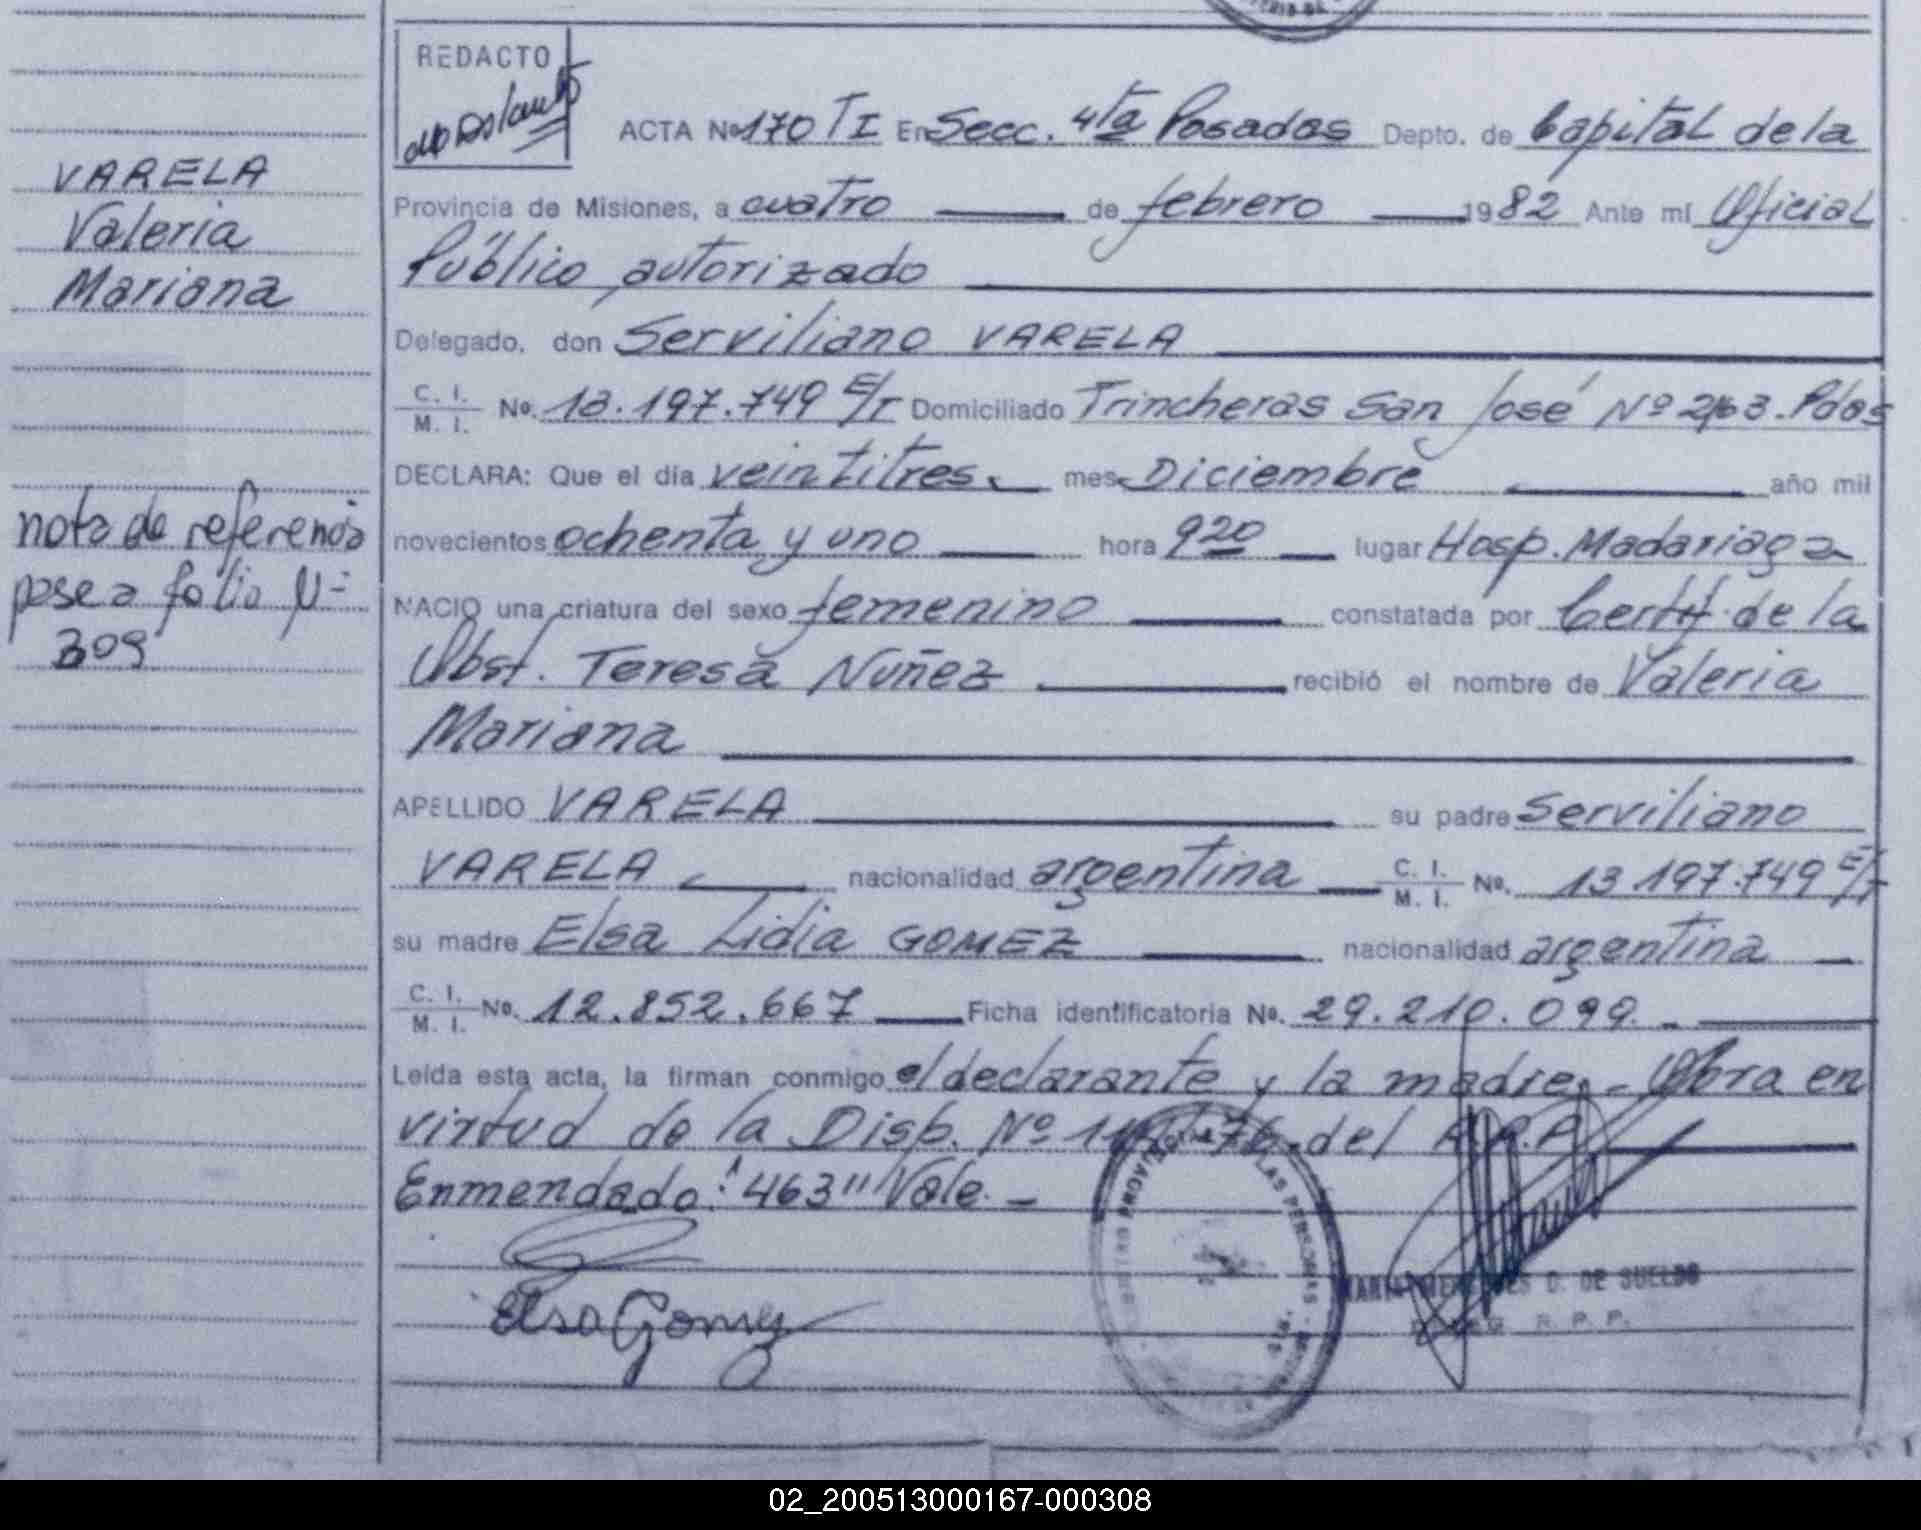 REDACTO
ACTA Nº 170 TI En Secc. 4ta Posadas Depto. de Capital de la
VARELA
Valeria
Mariana
Provincia de Misiones, a cuatro de febrero 1982 Ante mí Oficial
Público autorizado
Delegado, don Serviliano VARELA
C. I.
M. I. No. 13.197.749 E/T Domiciliado Trincheras San José Nº 2463. Pdas
DECLARA: Que el día veintitres mes Diciembre año mil
novecientos ochenta y uno hora 920 lugar Hosp. Madariaga
nota de referencia
pase a folio Nº
309
NACIO una criatura del sexo femenino constatada por Certif. de la
Obst. Teresa Nuñez recibió el nombre de Valeria
Mariana
APELLIDO VARELA su padre Serviliano
VARELA nacionalidad argentina C. I. M. I. No. 13.197.749 E/T
su madre Elsa Lidia GOMEZ nacionalidad argentina
C. I.
M. I. No. 12.852.667 Ficha identificatoria No. 29.210.099.-
Leída esta acta, la firman conmigo el declarante y la madre.- Obra en
virtud de la Disp. Nº del
Enmendado: "463" Vale.-
Elsa Gomez
D. DE SUELDO
R. P. P.
02_200513000167-000308